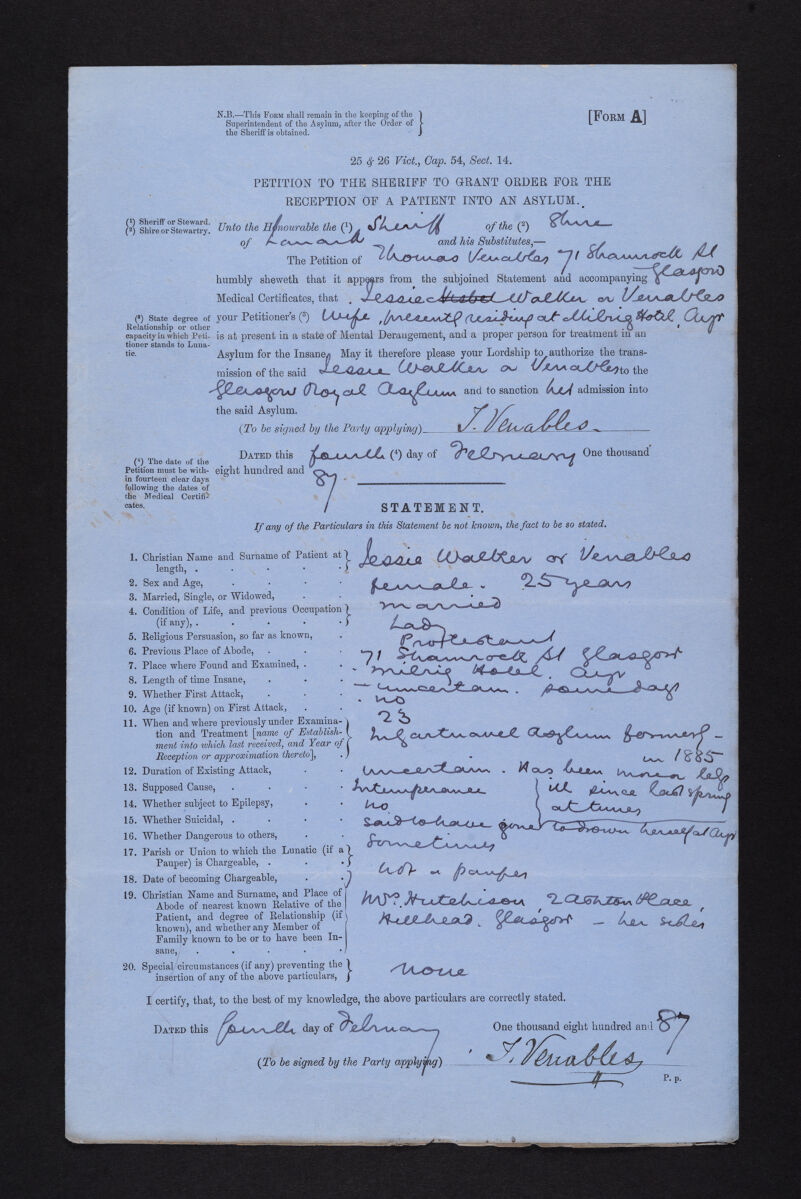 N.B.—This Form shall remain in the keeping of the
Superintendent of the Asylum, after the Order of
the Sheriff is obtained.
[Form A]
25 & 26 Vict., Cap. 54, Sect. 14.
PETITION TO THE SHERIFF TO GRANT ORDER FOR THE
RECEPTION OF A PATIENT INTO AN ASYLUM.
(¹) Sheriff or Steward.
(²) Shire or Stewartry.
Unto the Honourable the (¹) Sheriff of the (²) Shire
of Lanark and his Substitutes,—
The Petition of Thomas Venables 71 Shamrock St
Glasgow
humbly sheweth that it appears from the subjoined Statement and accompanying
Medical Certificates, that Jessie Walker or Venables
(³) State degree of
Relationship or other
capacity in which Peti-
tioner stands to Luna-
tic.
your Petitioner's (³) Wife, presently residing at Milrig Hotel, Ayr
is at present in a state of Mental Derangement, and a proper person for treatment in an
Asylum for the Insane. May it therefore please your Lordship to authorize the trans-
mission of the said Jessie Walker or Venables to the
Glasgow Royal Asylum and to sanction her admission into
the said Asylum.
(To be signed by the Party applying) T. Venables
(⁴) The date of the
Petition must be with-
in fourteen clear days
following the dates of
the Medical Certifi-
cates.
Dated this fourth (⁴) day of February One thousand
eight hundred and 87.
STATEMENT.
If any of the Particulars in this Statement be not known, the fact to be so stated.
1. Christian Name and Surname of Patient at
length, . Jessie Walker or Venables
2. Sex and Age, female. 25 years
3. Married, Single, or Widowed, married
4. Condition of Life, and previous Occupation
(if any), . Lady
5. Religious Persuasion, so far as known, Protestant
6. Previous Place of Abode, 71 Shamrock St Glasgow
7. Place where Found and Examined, Milrig Hotel, Ayr
8. Length of time Insane, uncertain. some days
9. Whether First Attack, no
10. Age (if known) on First Attack, 23
11. When and where previously under Examina-
tion and Treatment [name of Establish-
ment into which last received, and Year of
Reception or approximation thereto],
In Gartnavel Asylum formerly -
in 1885
12. Duration of Existing Attack, uncertain. Has been more or less
ill since last spring
at times
13. Supposed Cause, Intemperance
14. Whether subject to Epilepsy, no
15. Whether Suicidal, said to have gone to drown herself at Ayr
16. Whether Dangerous to others, Sometimes
17. Parish or Union to which the Lunatic (if a
Pauper) is Chargeable,
18. Date of becoming Chargeable,
not a pauper
19. Christian Name and Surname, and Place of
Abode of nearest known Relative of the
Patient, and degree of Relationship (if
known), and whether any Member of
Family known to be or to have been In-
sane,
Mrs. Hutchison, 2 Ashton Place,
Hillhead. Glasgow - her sister
20. Special circumstances (if any) preventing the
insertion of any of the above particulars,
none
I certify, that, to the best of my knowledge, the above particulars are correctly stated.
Dated this fourth day of February One thousand eight hundred and 87
(To be signed by the Party applying) T. Venables
P. p.